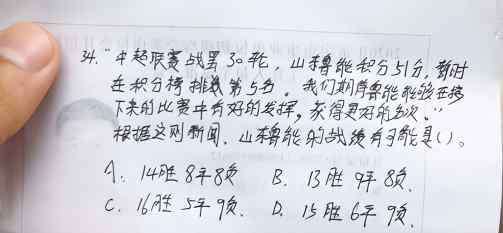 34.“中超联赛战罢30轮，山东鲁能积分51分，暂时
在积分榜排载第5名。我们期待鲁能能够在接
下来的比赛中有好的发挥，获得更好的名次。”
根据这则新闻，山东鲁能的战绩有可能是（）。
A. 14胜 8平 8负 B. 13胜 9平 8负.
C. 16胜 5平 9负. D. 15胜 6平 9负.